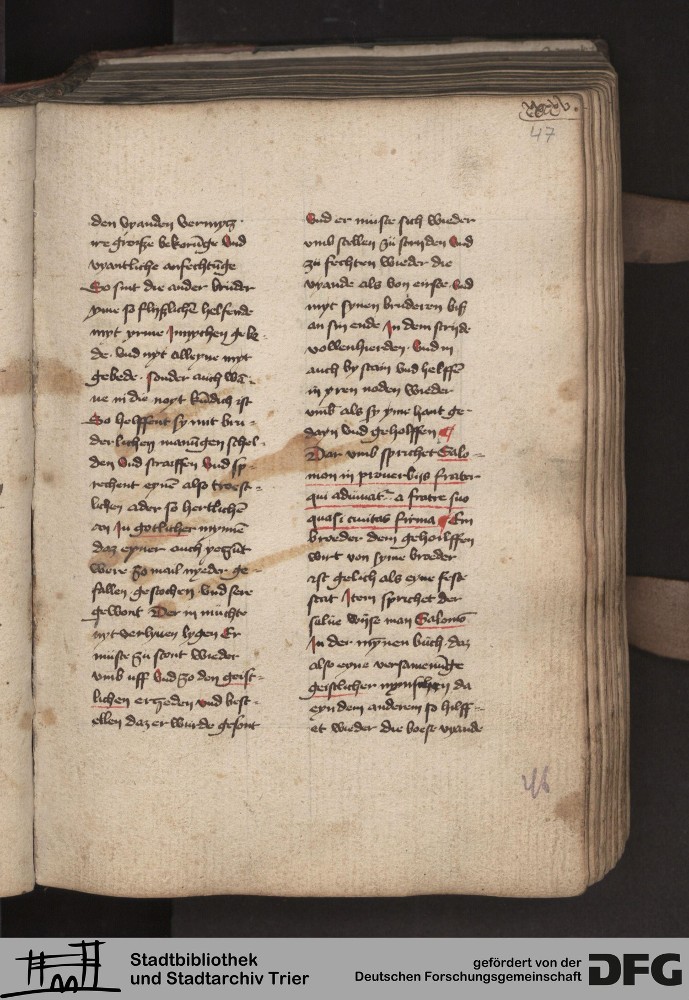 den vyanden vermytz
ire groisze bekorūge vnd
vyantliche anfechtūge
So sint die ander bruder
yme so flyszlichē helfende
myt yrme Jnnychen gebe-
de vnd nyt alleyne myt
gebede sonder auch wā-
ne in die noyt kūdich ist
So helffent sy mit bru-
derlichen manūgen schel-
den vnd straiffen vnd sp-
rechent eynē also troest-
lichen ader so hertlichē
an Jn gotlicher mynnē
daz eyner auch
were zo mail nyeder ge-
fallen gestochen vnd sere
gewont Der in müchte
nyt verliuen lygen Er
müste zu stont wieder
vmb uff vnd zo den geist-
lichen ergeden vnd best-
ellen daz er wurde gesont
vnd er müste sich wieder
vmb stellen zü stryden vnd
zü fechten wieder die
vyande als von eirste vnd
myt synen bruderen bisz
an sin ende Jn dem stryde
vollenhierden vnd in
auch by stain vnd helffē
in yren noden wieder
vmb als sy yme haint ge-
dayn vnd geholffen
Dar vmb sprichet Salo-
mon in proverbijs frater
qui adiuuat~ a fratre suo
quasi ciuitas firma Ein
broeder dem geholffen
wirt von syme broeder
ist gelich als eyne feste
stat Jtem sprichet der
selue wyse man Salomō
Jn der mynen büch daz
also eyne versamenūge
geistlicher mynschen da
eyn dem anderem so hilff-
et wieder die boese vyande
47
46
Stadtbibliothek
und Stadtarchiv Trier
gefördert von der
Deutschen Forschungsgemeinschaft
DFG